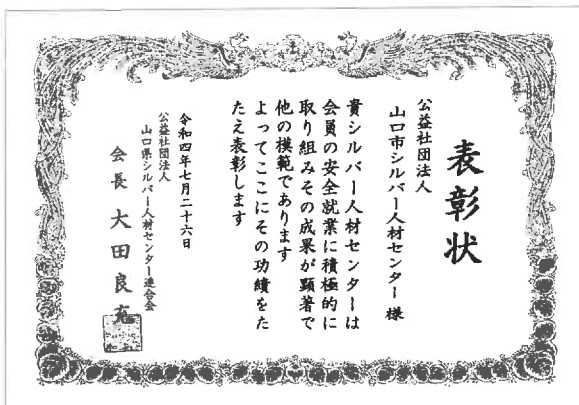 表彰状
公益社団法人
山口市シルバー人材センター 様
貴シルバー人材センターは
会員の安全就業に積極的に
取り組みその成果が顕著で
他の模範であります
よってここにその功績をた
たえ表彰します
令和四年七月二十六日
公益社団法人
山口県シルバー人材センター連合会
会長 大田良充